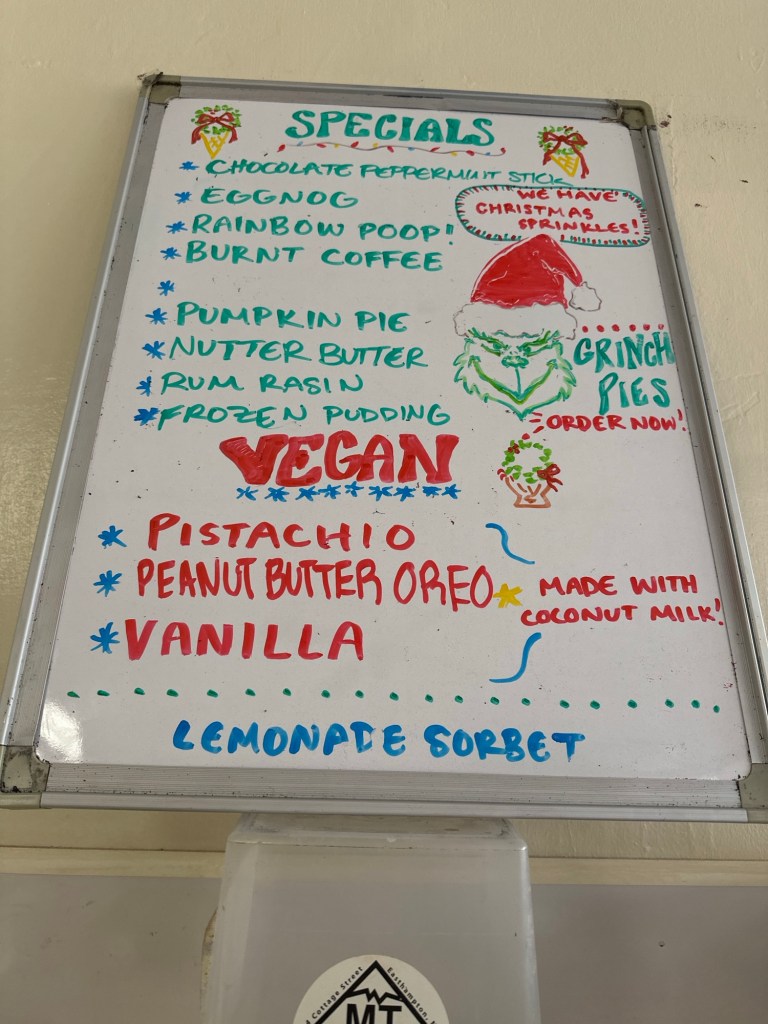 SPECIALS
* CHOCOLATE PEPPERMINT STICK
* EGGNOG
WE HAVE
CHRISTMAS
SPRINKLES!
* RAINBOW POOP!
* BURNT COFFEE
*
* PUMPKIN PIE
* NUTTER BUTTER
* RUM RASIN
* FROZEN PUDDING
GRINCH
PIES
ORDER NOW!
VEGAN
* PISTACHIO
* PEANUT BUTTER OREO
* VANILLA
* MADE WITH
COCONUT MILK!
LEMONADE SORBET
Cottage Street
Easthampton,
MT